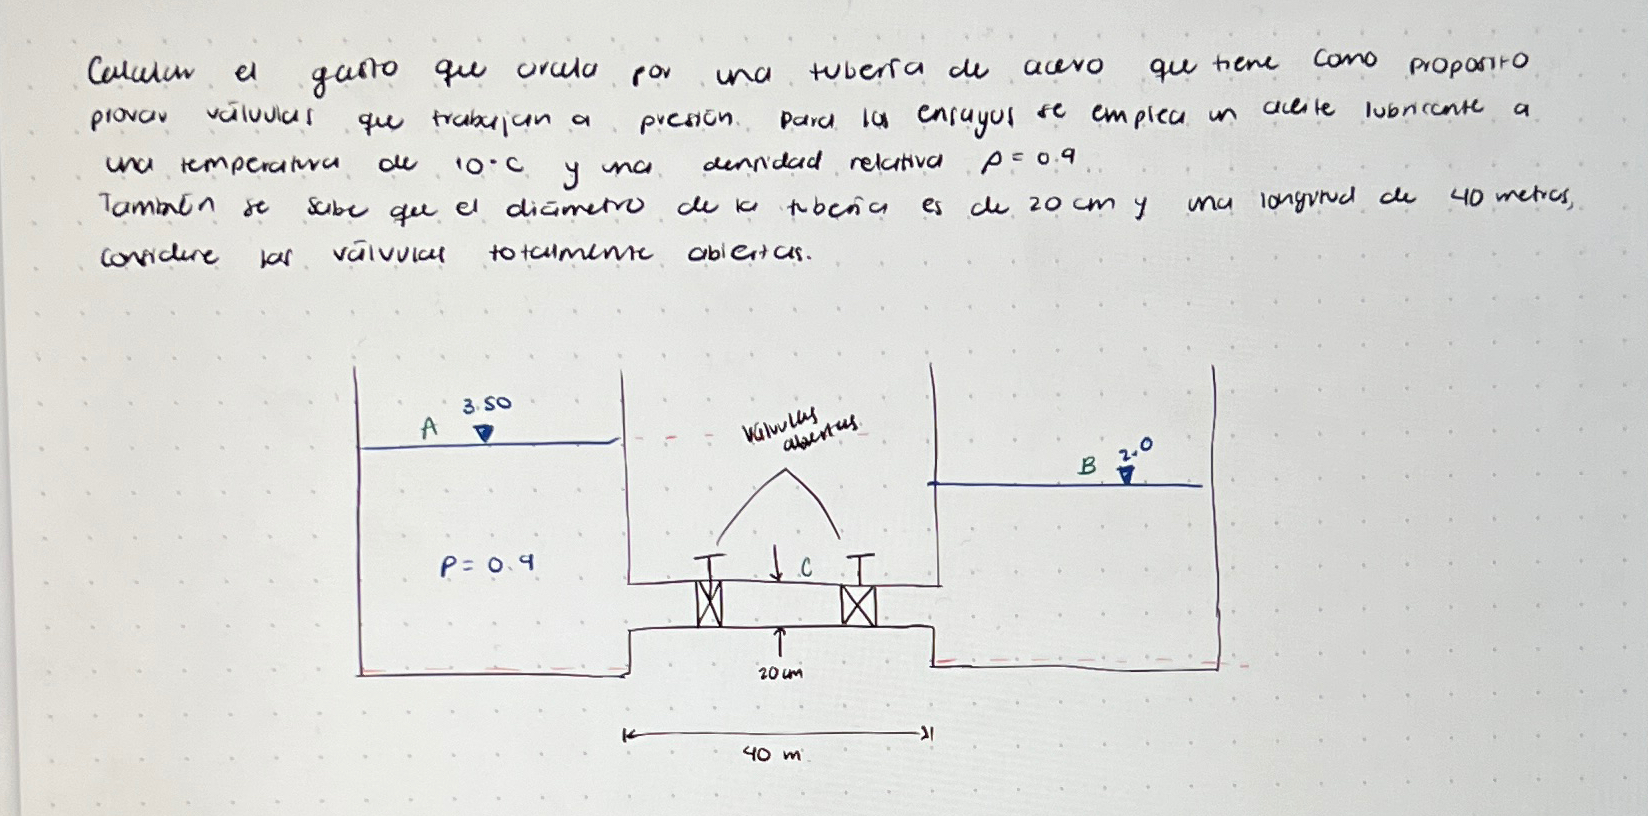 Calcular el gasto que circula por una tubería de acero que tiene como proposito
provar válvulas que trabajan a presión. para los ensayos se emplea un aceite lubricante a
una temperatura de 10°C y una densidad relativa ρ = 0.9.
También se sabe que el diámetro de la tubería es de 20 cm y una longitud de 40 metros,
considere las válvulas totalmente abiertas.
3.50
A
válvulas
abiertas
2.0
B
ρ = 0.9
C
20 cm
40 m